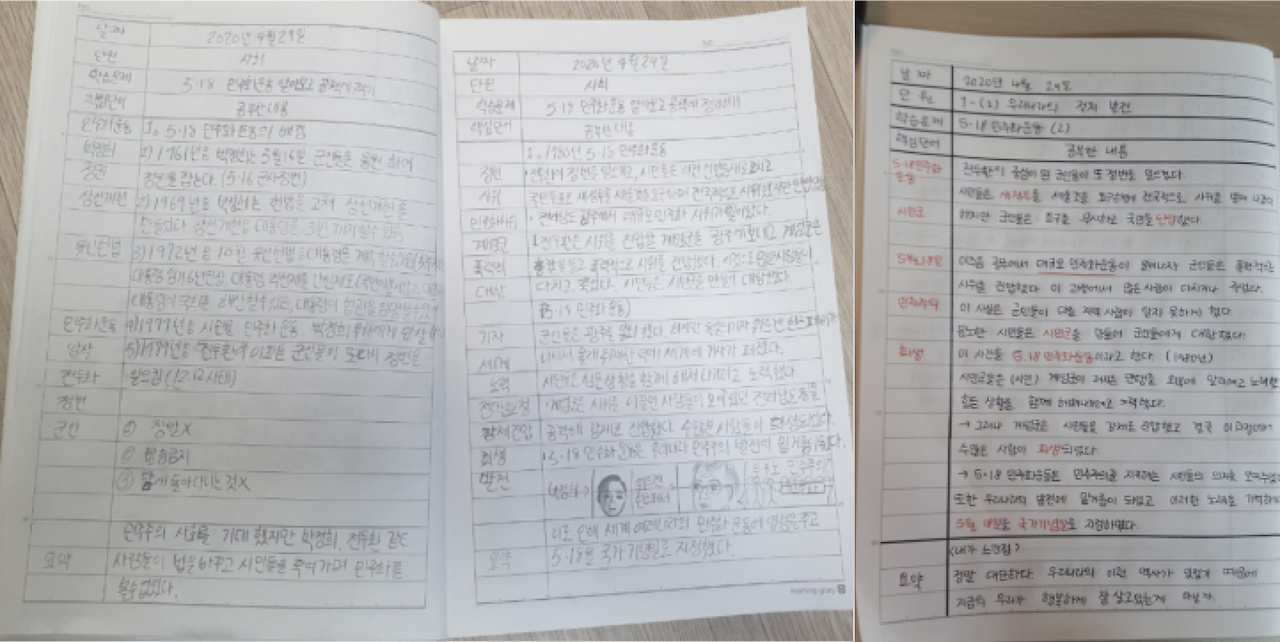 날짜 2020년 4월 29일
단원 사회
학습문제 5·18 민주화운동 알아보고 공책에 적기
핵심단어 공부한 내용
민주화운동 1. 5·18 민주화운동의 배경
박정희 1) 1961년 박정희는 5월 16일 군인들을 동원하여
정변 정변을 잡는다. (5·16 군사정변)
삼선개헌 2) 1969년 박정희는 헌법을 고쳐 삼선개헌을
만들었다 삼선개헌은 대통령을 3번까지 할 수 있음
유신헌법 3) 1972년 10월 유신헌법
대통령 임기 6년연장, 대통령 직선제를 간선제로
민주화운동 4) 1979년 시민들 민주화 운동 박정희
암살 5) 1979년 전두환이 이끄는 군인들이 또다시 정변을
전두환 일으킴 (12·12사태)
정변
군인 ① 정발X
②
③ 밤에 돌아다니는 것X
민주주의 사회를 기대했지만 박정희, 전두환 같은
요약 사람들이 법을 바꾸고 시민들을 죽여가며 민주화를
볼 수 없었다.
날짜 2020년 4월 29일
단원 사회
학습문제 5·18 민주화운동 알아보고 공책에 정리하기
핵심단어 공부한 내용
1. 1980년 5·18 민주화운동
정변 · 전두환이 정변을 일으켰고, 시민들은 이번
시위 국민투표로 새정부를 세울것을 요구하며 전국적으로 시위
민주화시위 · 전라남도 광주에서 대규모 민주화 시위가 일어났다.
계엄군 전두환은 시위를 진압할 계엄군을 광주에 보내고 계엄군은
폭력적 폭력적으로 시위를 진압했다. 이것으로 많은 사람들이
대항 다치고 죽었다. 시민들은 시민군을 만들어 대항했다.
(5·18 민주화 운동)
기자 군인들은 광주를 했다. 하지만 독일기자 위르겐 힌츠페터가
세계 세계에 기사가 퍼졌다.
노력 시민들은 힘든 상황을 함께 헤쳐나가려고 노력했다.
전라남도청 계엄군은 시위를 이끌던 사람들이 모여있던 전라남도청을
강제진압 공격해 강제로 진압했다. 수많은 사람들이 희생되었다.
희생 5·18 민주화 운동은 우리나라 민주주의 발전에 밑거름이 됐다.
발전 위르겐 힌츠페터
이로 인해 세계 여러나라의 민주화 운동에 영향을 주고
요약 5·18을 국가 기념일로 지정했다.
morning glory
날짜 2020년 4월 29일
단원 1-(1) 우리나라의 정치 발전
학습문제 5·18 민주화운동 (2)
핵심단어 공부한 내용
5·18민주화운동 전두환이 중심이 된 군인들이 또 정변을 일으켰다.
시민들은 새정부를 세울것을 요구하며 전국적으로 시위를 벌여 나갔다
시민군 하지만 군인들은 요구를 무시하고 국민을 탄압했다.
5월 18일 이즈음 광주에서 대규모 민주화운동이 일어나자 군인들은 폭력적으로
시위를 진압했다 이 과정에서 많은 사람이 다치거나 죽었다.
민주주의 이 사실은 군인들이 다른 지역 사람이 알지 못하게 했다.
분노한 시민들은 시민군을 만들어 군인들에게 대항했다.
희생 이 사건을 5.18 민주화운동이라고 한다. (1980년)
시민군들은 (시민) 계엄군이 저지른 만행을 외부에 알리려고 노력
힘든 상황을 함께 헤쳐나가려고 노력했다.
→ 그러나 계엄군은 시민들을 강제로 진압했고 결국 이과정에서
수많은 사람이 희생되었다.
→ 5·18 민주화운동은 민주주의를 지키려는 시민들의 의지를 보여주었
또한 우리나라의 발전에 밑거름이 되었고 이러한 노력을 기억하
5월 18일을 국가기념일로 지정하였다.
<내가 느낀점>
요약 정말 대단하다. 우리나라의 이런 역사가 있었기 때문에
지금의 우리가 행복하게 잘 살고있는게 아닐까.